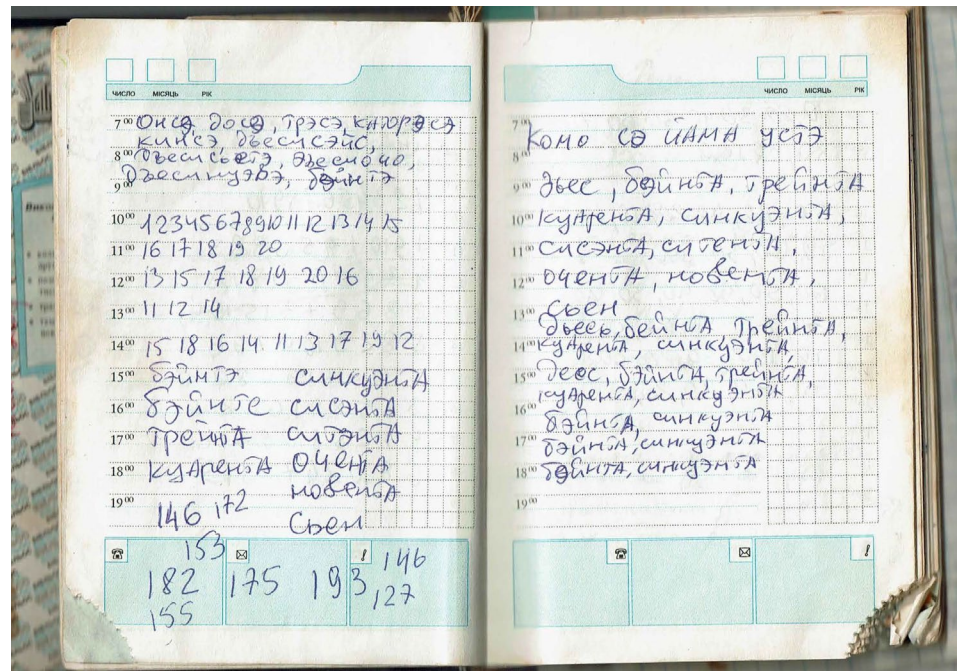 число місяць рік
7 00 Онсэ, досэ, трэсэ, каторсэ
кинсэ, дьесисэйс,
8 00 Дьесисьетэ, дьесиочо,
9 00 Дьесинуэвэ, бэйнтэ
10 00 1 2 3 4 5 6 7 8 9 10 11 12 13 14 15
11 00 16 17 18 19 20
12 00 13 15 17 18 19 20 16
13 00 11 12 14
14 00 15 18 16 14 11 13 17 19 12
15 00 бэйнтэ синкуэнтА
16 00 бэйнте сисэнтА
17 00 трейнтА ситэнтА
18 00 куАрентА ОчентА
новентА
19 00 146 172 Сьен
153
182 175 193 146
155 127
число місяць рік
7 00
8 00 Комо сэ йАмА устэ
9 00 Дьес, бэйнтА, трейнтА
10 00 куАрентА, синкуэнтА,
11 00 сисэнтА, ситентА,
12 00 очентА, новентА,
13 00 сьен
дьесь, бейнтА, трейнтА,
14 00 куАрентА, синкуэнтА,
15 00 Деос, бэйнтА, трейнтА,
куАрентА, синкуэнтА
16 00 бэйнтА, синкуэнтА
17 00 бэйнтА, синкуэнтА
18 00 бэйнтА, синкуэнтА
19 00